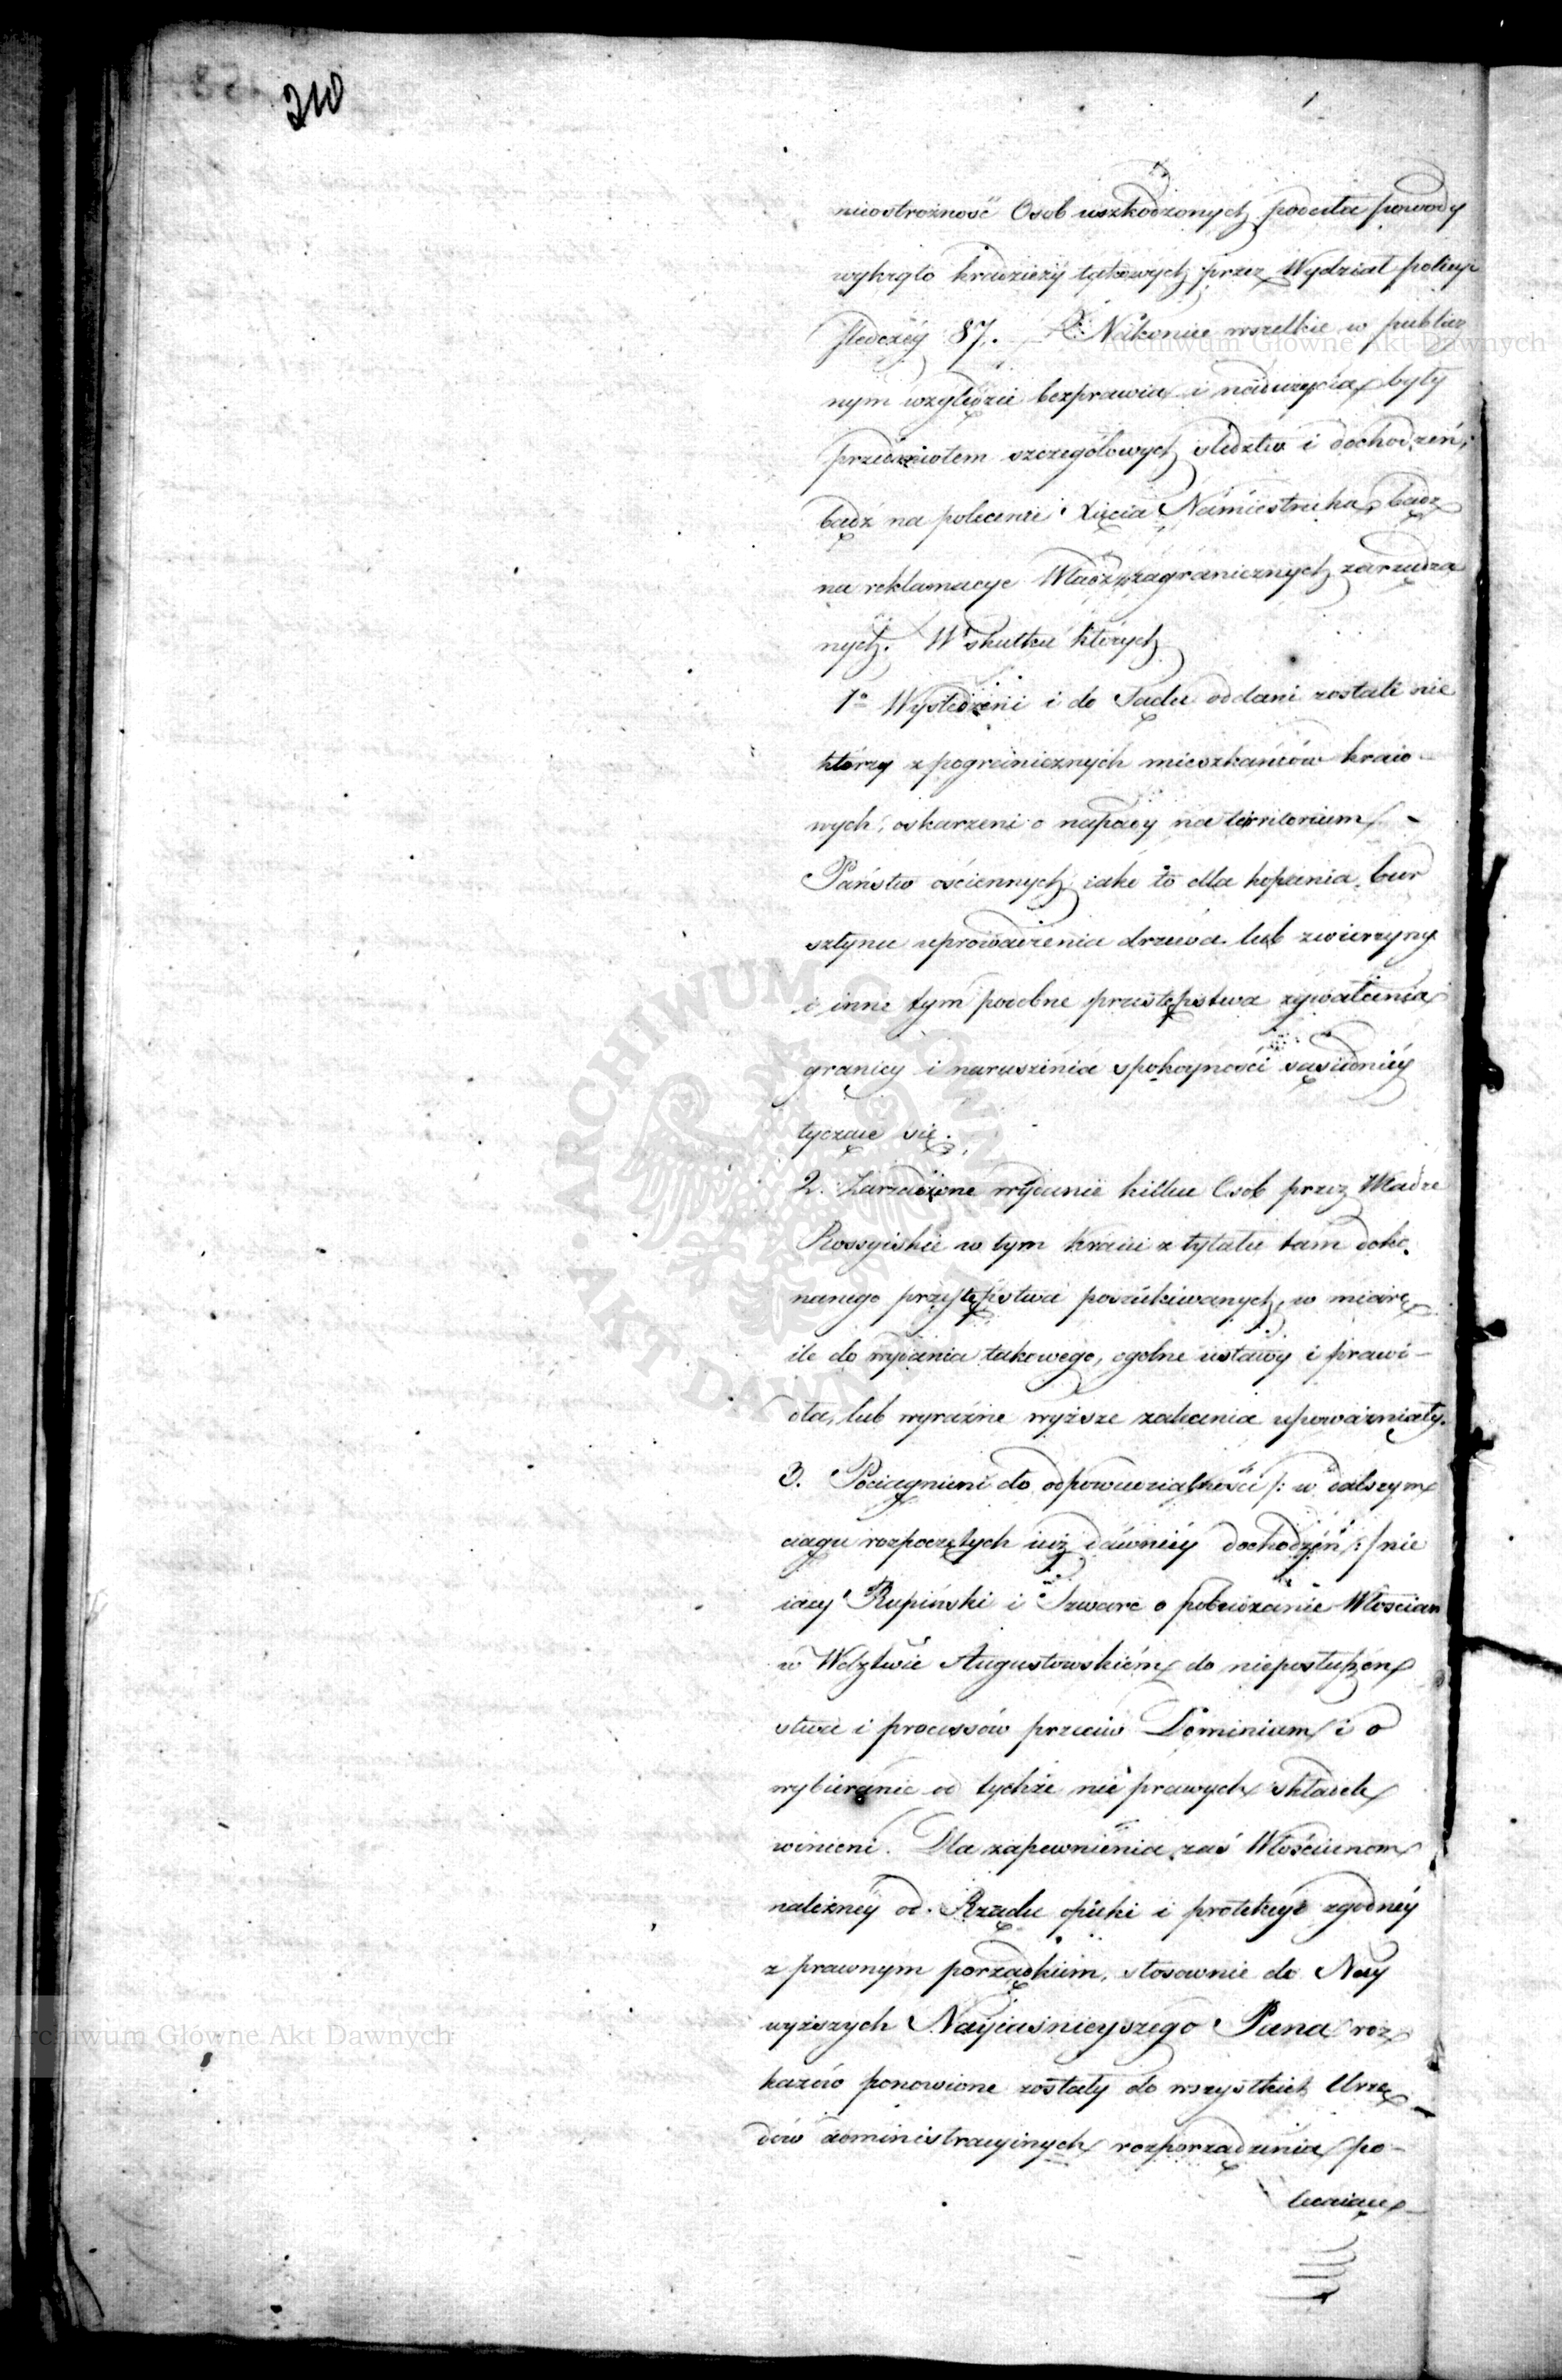 210
nieostrożność Osob uszkodzonych podała powody
wykryto kradzieży takowych przez Wydział policyi
śledczéy 87. Nakoniec wszelkie w publicz
nym względzie bezprawia i nadużycia były
przedmiotem szczegółowych śledztw i dochodzeń,
bądź na polecenie Xięcia Namiestnika, bądź
na reklamacye Władz zagranicznych zarządza
nych. W skutku których
1o Wyśledzeni i do Sądu oddani zostali nie
którzy z pogranicznych mieszkańców kraio-
wych, oskarzeni o napady na territorium -
Państw ościennych iako to dla kopania bur
sztynu uprowadzenia drzewa lub zwierzyny
i inne tym podobne przestępstwa zgwałcenia
granicy i naruszenia spokoyności sąsiedniéy
tyczące się.
2. Zarządzone wydanie kilku Osob przez Władze
Rossyiskie w tym kraiu z tytułu tam doko
nanego przestępstwa poszukiwanych, w miarę
ile do wydania takowego, ogolne ustawy i prawi-
dła, lub wyraźne wyższe zalecenia upoważniały.
3. Pociągnieni do odpowiedzialności /: w dalszym
ciągu rozpoczętych iuż dawniéy dochodzeń :/ nie
iacy Rupiński i Szwarc o pobudzanie Włoscian
w Wdztwie Augustowskiém do nieposłuszeń
stwa i processów przeciw Dominium i o
wybieranie od tychże nie prawych składek
winieni. Dla zapewnienia zaś Włościanom
należnéy od Rządu opieki i protekcyi zgodnéy
z prawnym porządkiem, stosownie do Nay
wyższych Nayiaśnieyszego Pana roz
kazów ponowione zostały do wszystkich Urzę
dów administracyinych rozporządzenia po-
lecaiące
Archiwum Główne Akt Dawnych
Archiwum Główne Akt Dawnych
ARCHIWUM GŁÓWNE AKT DAWNYCH